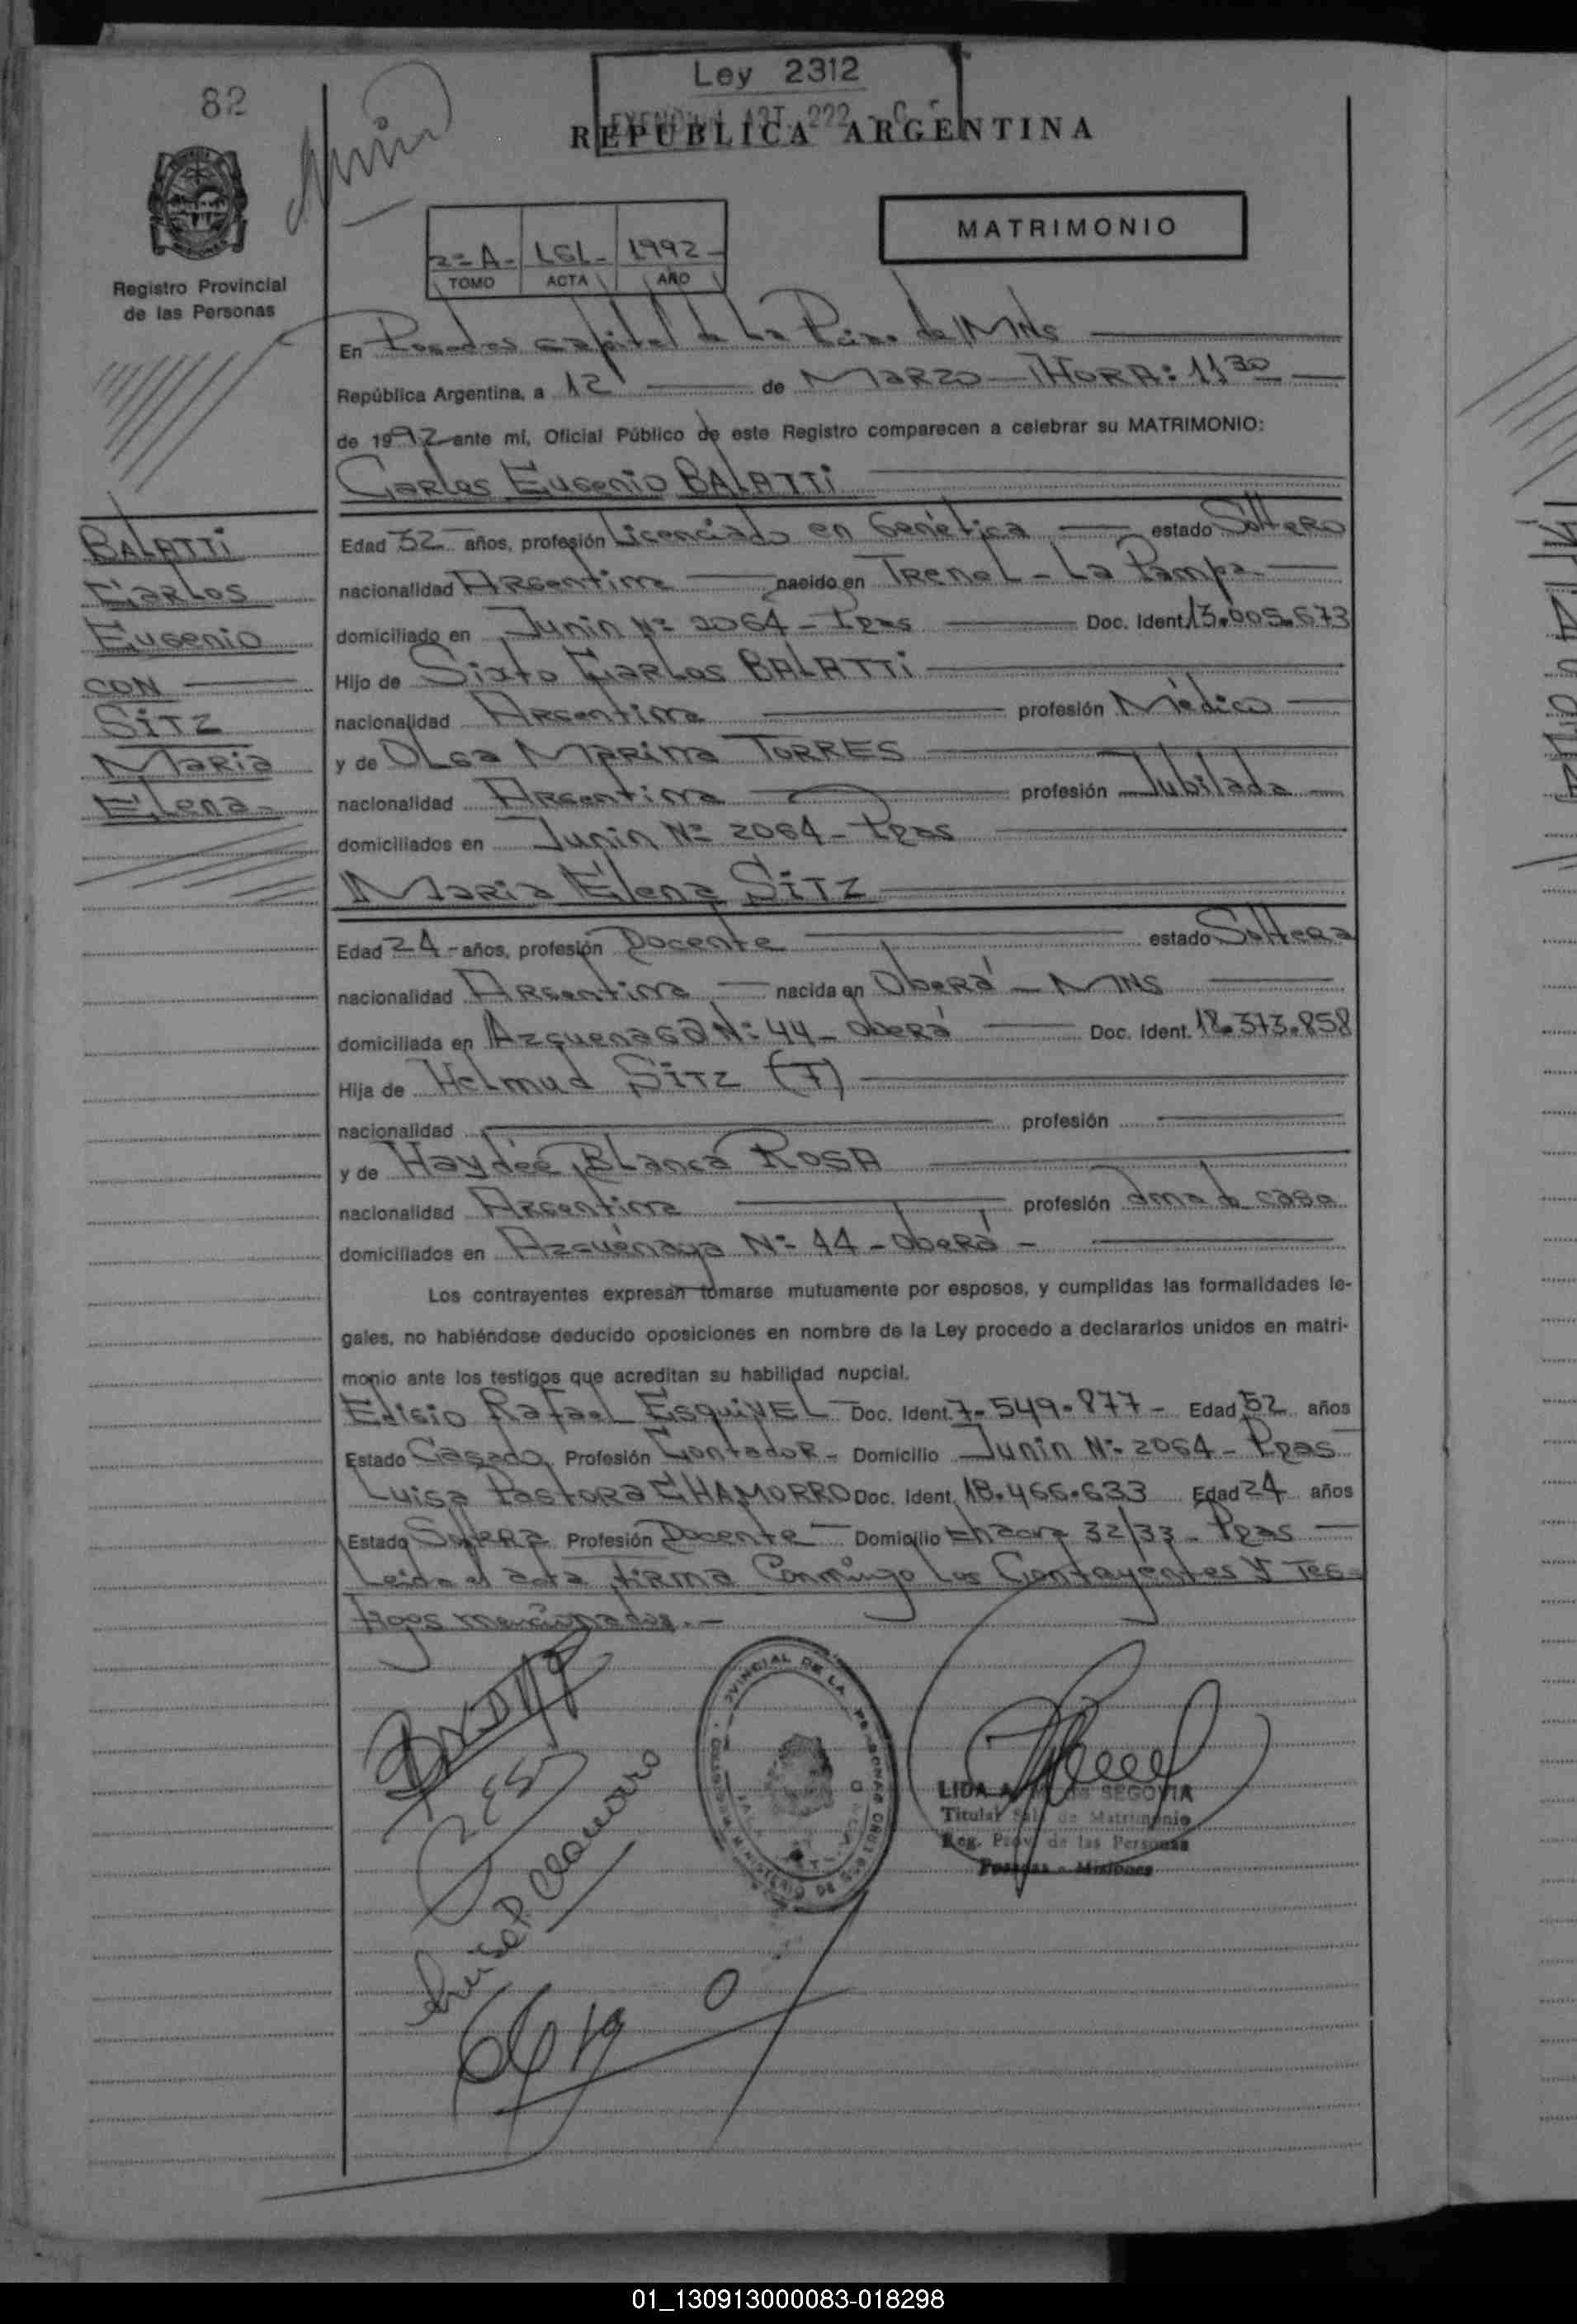 82
Ley 2312
REPUBLICA ARGENTINA
Registro Provincial
de las Personas
MATRIMONIO
2º A- 1992-
TOMO ACTA AÑO
En Posadas capital de La Pcia. de Mns
República Argentina, a 12 de MARZO - HORA: 11 30
de 1992 ante mí, Oficial Público de este Registro comparecen a celebrar su MATRIMONIO:
Carlos Eugenio BALATTi
BALATTi
Carlos
Eugenio
CON
SiTZ
Maria
Elena-
Edad 32 años, profesión Licenciado en Genética estado Soltero
nacionalidad Argentina nacido en Trenel - La Pampa
domiciliado en Junin Nº 2064 - Pzas Doc. Ident. 13.005.673
Hijo de Sixto Carlos BALATTi
nacionalidad Argentina profesión Médico
y de Olga Marina TORRES
nacionalidad Argentina profesión Jubilada
domiciliados en Junin Nº 2064 - Pzas
Maria Elena SiTZ
Edad 24 - años, profesión Docente estado Soltera
nacionalidad Argentina nacida en Oberá - MNS
domiciliada en Azcuenaga Nº 44 - Oberá Doc. Ident. 18.373.858
Hija de Helmud SiTZ (F)
nacionalidad profesión
y de Haydée Blanca ROSA
nacionalidad Argentina profesión ama de casa
domiciliados en Azcuénaga Nº 44 - Oberá -
Los contrayentes expresan tomarse mutuamente por esposos, y cumplidas las formalidades le-
gales, no habiéndose deducido oposiciones en nombre de la Ley procedo a declararlos unidos en matri-
monio ante los testigos que acreditan su habilidad nupcial.
Eligio Rafael ESquiVEL Doc. Ident. 7.549.877 - Edad 52 años
Estado Casado Profesión Contador - Domicilio Junin Nº 2064 - Pzas
Luisa Pastora CHAMORRO Doc. Ident. 18.466.633 Edad 24 años
Estado Soltera Profesión Docente - Domicilio Chacra 32/33 - Pzas
Leida el acta, firma Conmigo Los Contayentes Y Tes-
tigos mencionados.-
Luisa P. Chamorro
LIDA A. de SEGOVIA
Titular Sala de Matrimonio
Reg. Prov. de las Personas
Posadas - Misiones
01_130913000083-018298